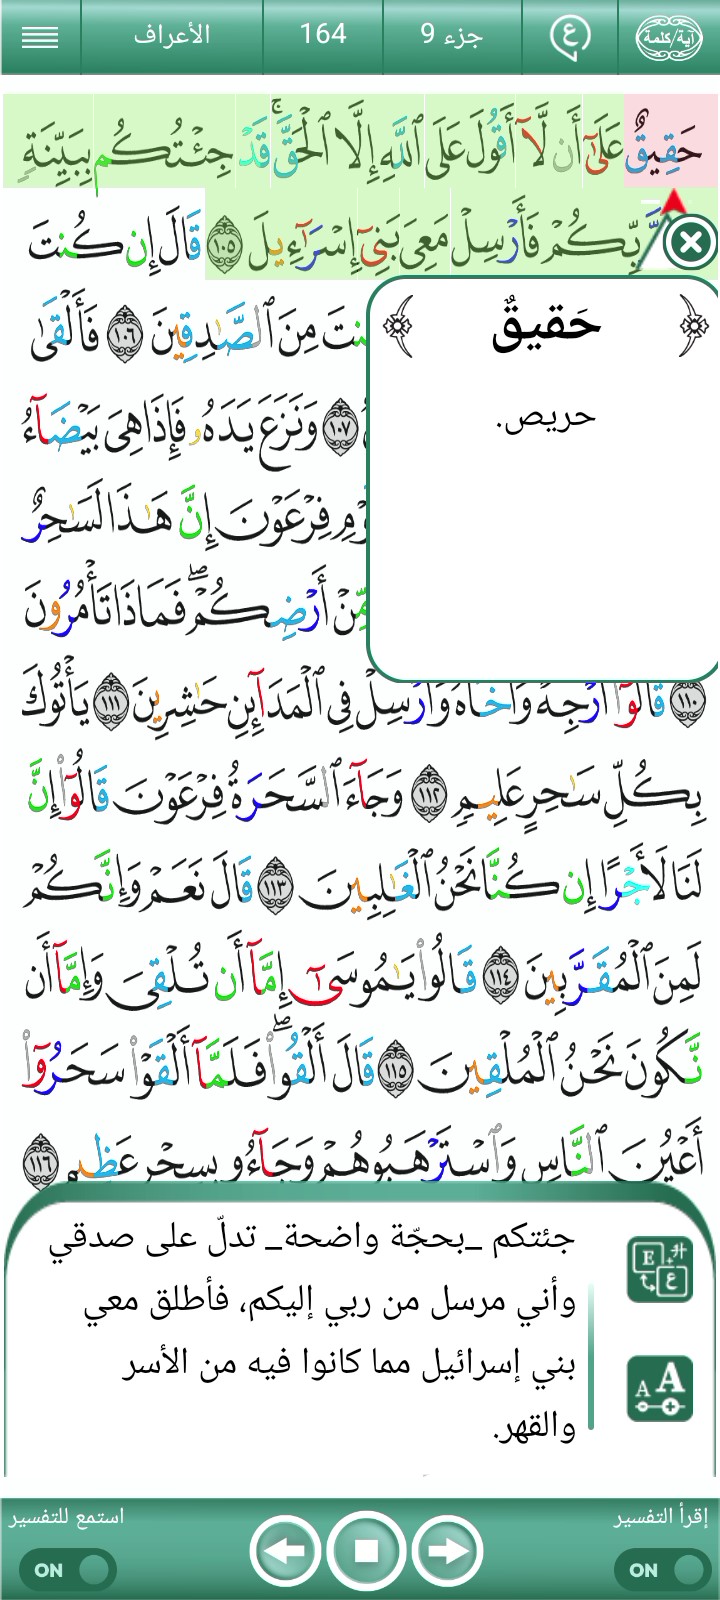 آية/كلمة
ع
جزء 9
164
الأعراف
حَقِيقٌ عَلَىٰٓ أَن لَّآ أَقُولَ عَلَى ٱللَّهِ إِلَّا ٱلْحَقَّ ۚ قَدْ جِئْتُكُم بِبَيِّنَةٍ
رَّبِّكُمْ فَأَرْسِلْ مَعِىَ بَنِىٓ إِسْرَٰٓءِيلَ ١٠٥ قَالَ إِن كُنتَ
كُنتَ مِنَ ٱلصَّٰدِقِينَ ١٠٦ فَأَلْقَىٰ
١٠٧ وَنَزَعَ يَدَهُۥ فَإِذَا هِىَ بَيْضَآءُ
قَوْمِ فِرْعَوْنَ إِنَّ هَٰذَا لَسَٰحِرٌ
مِّنْ أَرْضِكُمْ ۖ فَمَاذَا تَأْمُرُونَ
حَقيقٌ
حريص.
١١٠ قَالُوٓا۟ أَرْجِهْ وَأَخَاهُ وَأَرْسِلْ فِى ٱلْمَدَآئِنِ حَٰشِرِينَ ١١١ يَأْتُوكَ
بِكُلِّ سَٰحِرٍ عَلِيمٍ ١١٢ وَجَآءَ ٱلسَّحَرَةُ فِرْعَوْنَ قَالُوٓا۟ إِنَّ
لَنَا لَأَجْرًا إِن كُنَّا نَحْنُ ٱلْغَٰلِبِينَ ١١٣ قَالَ نَعَمْ وَإِنَّكُمْ
لَمِنَ ٱلْمُقَرَّبِينَ ١١٤ قَالُوا۟ يَٰمُوسَىٰٓ إِمَّآ أَن تُلْقِىَ وَإِمَّآ أَن
نَّكُونَ نَحْنُ ٱلْمُلْقِينَ ١١٥ قَالَ أَلْقُوا۟ ۖ فَلَمَّآ أَلْقَوْا۟ سَحَرُوٓا۟
أَعْيُنَ ٱلنَّاسِ وَٱسْتَرْهَبُوهُمْ وَجَآءُو بِسِحْرٍ عَظِيمٍ ١١٦
جئتكم _بحجّة واضحة_ تدلّ على صدقي
وأني مرسل من ربي إليكم، فأطلق معي
بني إسرائيل مما كانوا فيه من الأسر
والقهر.
إقرأ التفسير
استمع للتفسير
ON
ON